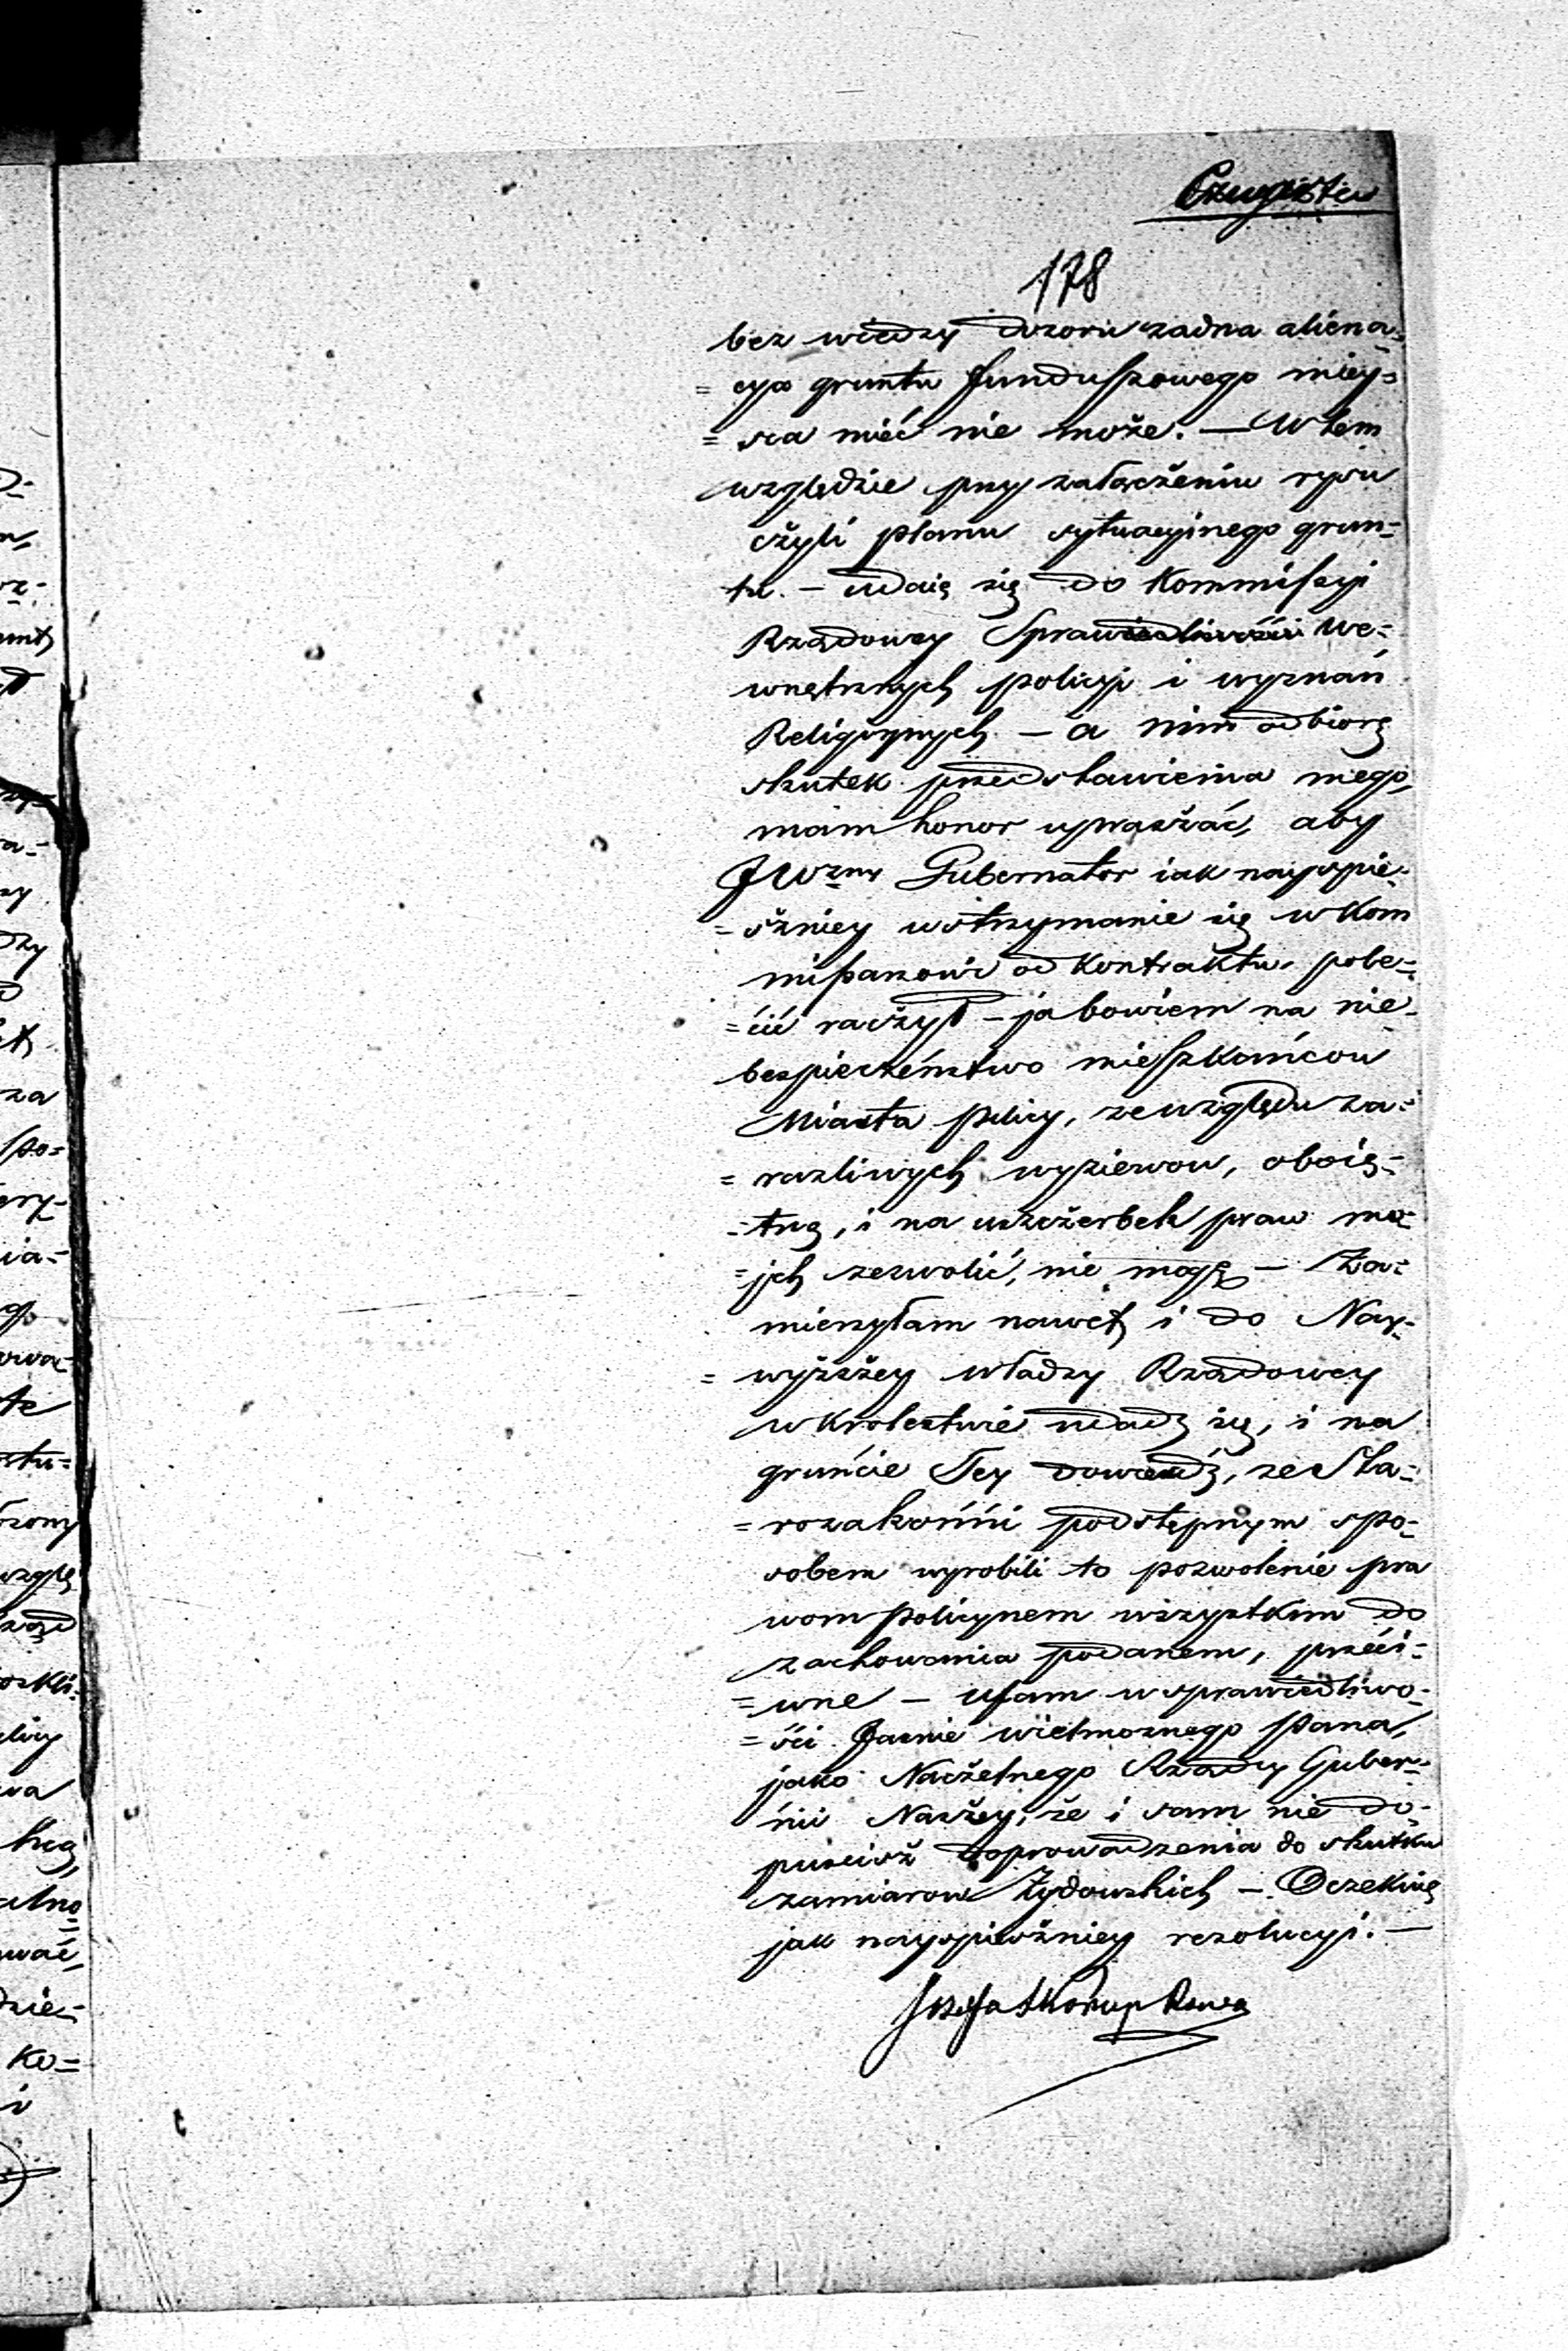 178
bez wiedzy dozoru zadna aliena=
= cya gruntu funduszowego miey=
= sca mieć nie może. — W tem
względzie przy załączeniu rysu
czyli planu sytuacyinego grun=
tu. — udaię się do Kommissyi
Rządowey Spraw We=
wnętrznych policyi i wyznań
Religiynych — a nim odbiorę
skutek przedstawienia mego,
mam honor upraszać, aby
JWzny Gubernator iak nayspie=
= szniey wstrzymanie się w Kom
missarzowi od Kontraktu pole=
= cić raczył — ja bowiem na nie
bespieczeństwo mieszkańcow
Miasta pilicy, ze względu za=
= razliwych wyziewow, oboię=
= tną, i na uszczerbek praw mo=
= jch zezwolić, nie mogę — Za=
mierzyłam nawet i do Nay=
= wyższey władzy Rządowey
w Krolestwie udadź się, i na
gruncie Tey dowieźdź, ze Sta=
= rozakonni podstępnym spo=
sobem wyrobili to pozwolenie pra
wom policynem wszystkim do
zachowania podanem, przeci=
= wne — ufam w sprawiedliwo=
= ści Jasnie wielmoznego Pana,
jako Naczelnego Rządcy Guber=
nii Naszey, że i sam nie do=
puścisz doprowadzenia do skutku
zamiarow Żydowskich — Oczekuię
jak nayspieszniey rezolucyi. —
Jozefa